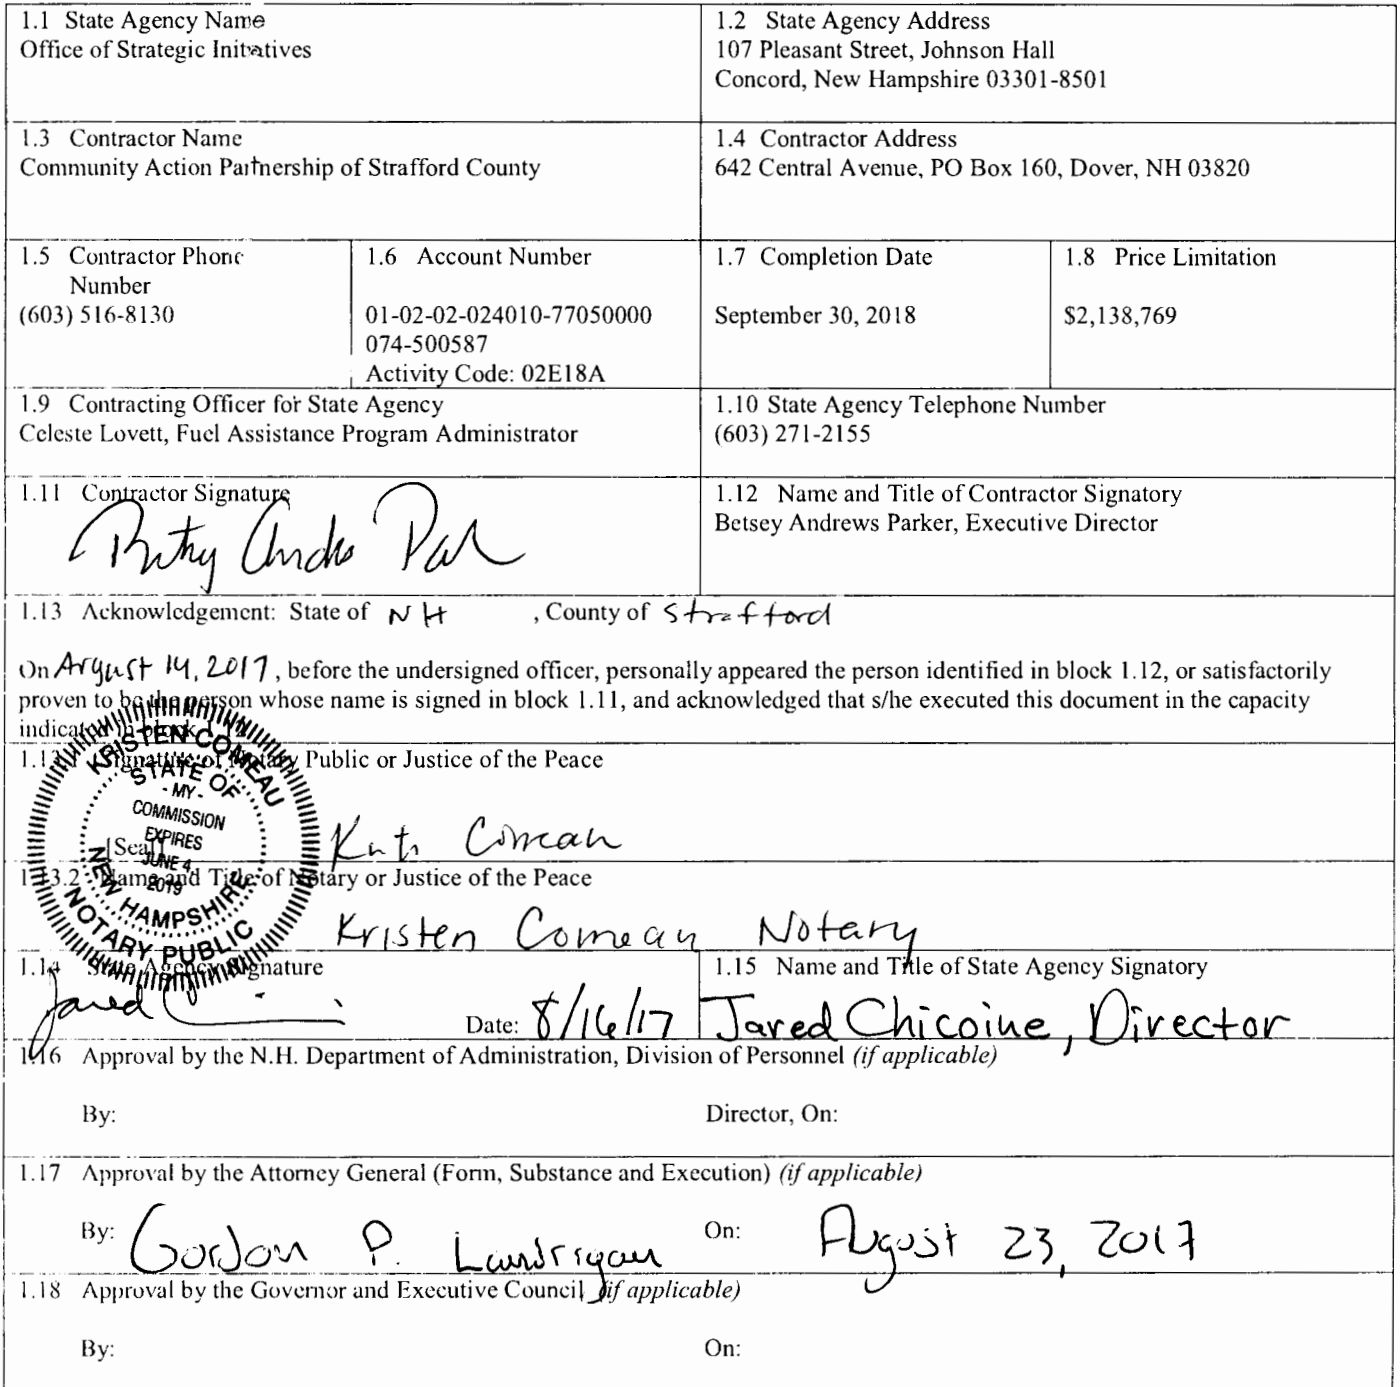 1.1 State Agency Name
Office of Strategic Initiatives
1.2 State Agency Address
107 Pleasant Street, Johnson Hall
Concord, New Hampshire 03301-8501
1.3 Contractor Name
Community Action Partnership of Strafford County
1.4 Contractor Address
642 Central Avenue, PO Box 160, Dover, NH 03820
1.5 Contractor Phone
Number
(603) 516-8130
1.6 Account Number
01-02-02-024010-77050000
074-500587
Activity Code: 02E18A
1.7 Completion Date
September 30, 2018
1.8 Price Limitation
$2,138,769
1.9 Contracting Officer for State Agency
Celeste Lovett, Fuel Assistance Program Administrator
1.10 State Agency Telephone Number
(603) 271-2155
1.11 Contractor Signature
1.12 Name and Title of Contractor Signatory
Betsey Andrews Parker, Executive Director
1.13 Acknowledgement: State of NH , County of Strafford
On August 14, 2017, before the undersigned officer, personally appeared the person identified in block 1.12, or satisfactorily
proven to be the person whose name is signed in block 1.11, and acknowledged that s/he executed this document in the capacity
indicated in block 1.12.
1.13.1 Signature of Notary Public or Justice of the Peace
KRISTEN COMEAU
STATE OF
- MY -
COMMISSION
EXPIRES
JUNE 4
2019
NEW HAMPSHIRE
NOTARY PUBLIC
[Seal]
Comeau
1.13.2 Name and Title of Notary or Justice of the Peace
Kristen Comeau Notary
1.14 State Agency Signature
Jared
Date: 8/16/17
1.15 Name and Title of State Agency Signatory
Jared Chicoine, Director
1.16 Approval by the N.H. Department of Administration, Division of Personnel (if applicable)
By: Director, On:
1.17 Approval by the Attorney General (Form, Substance and Execution) (if applicable)
By: Gordon P. Landrigan On: August 23, 2017
1.18 Approval by the Governor and Executive Council (if applicable)
By: On: